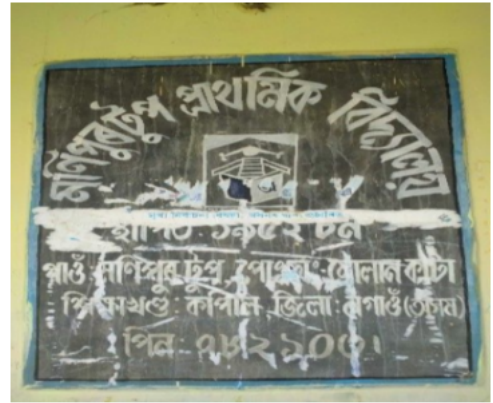 মণিপুৰটুপ প্ৰাথমিক বিদ্যালয়
স্থাপিত: ১৯৫২ চন
গাওঁ: মণিপুৰ টুপ, পোঃঅঃ: কাটা
শিক্ষাখণ্ড: কপিলি, জিলা: নগাওঁ (অসম)
পিন: ৭৮২১০৩।